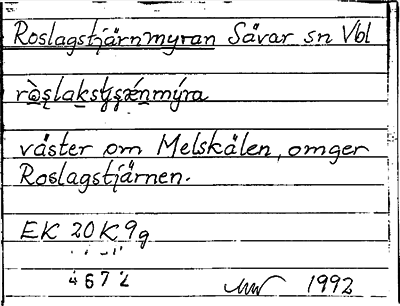 Roslagstjärnmyran Sävar sn Vbl
väster om Melskälen, omger
Roslagstjärnen.
EK 20 K 9g
4672
1992